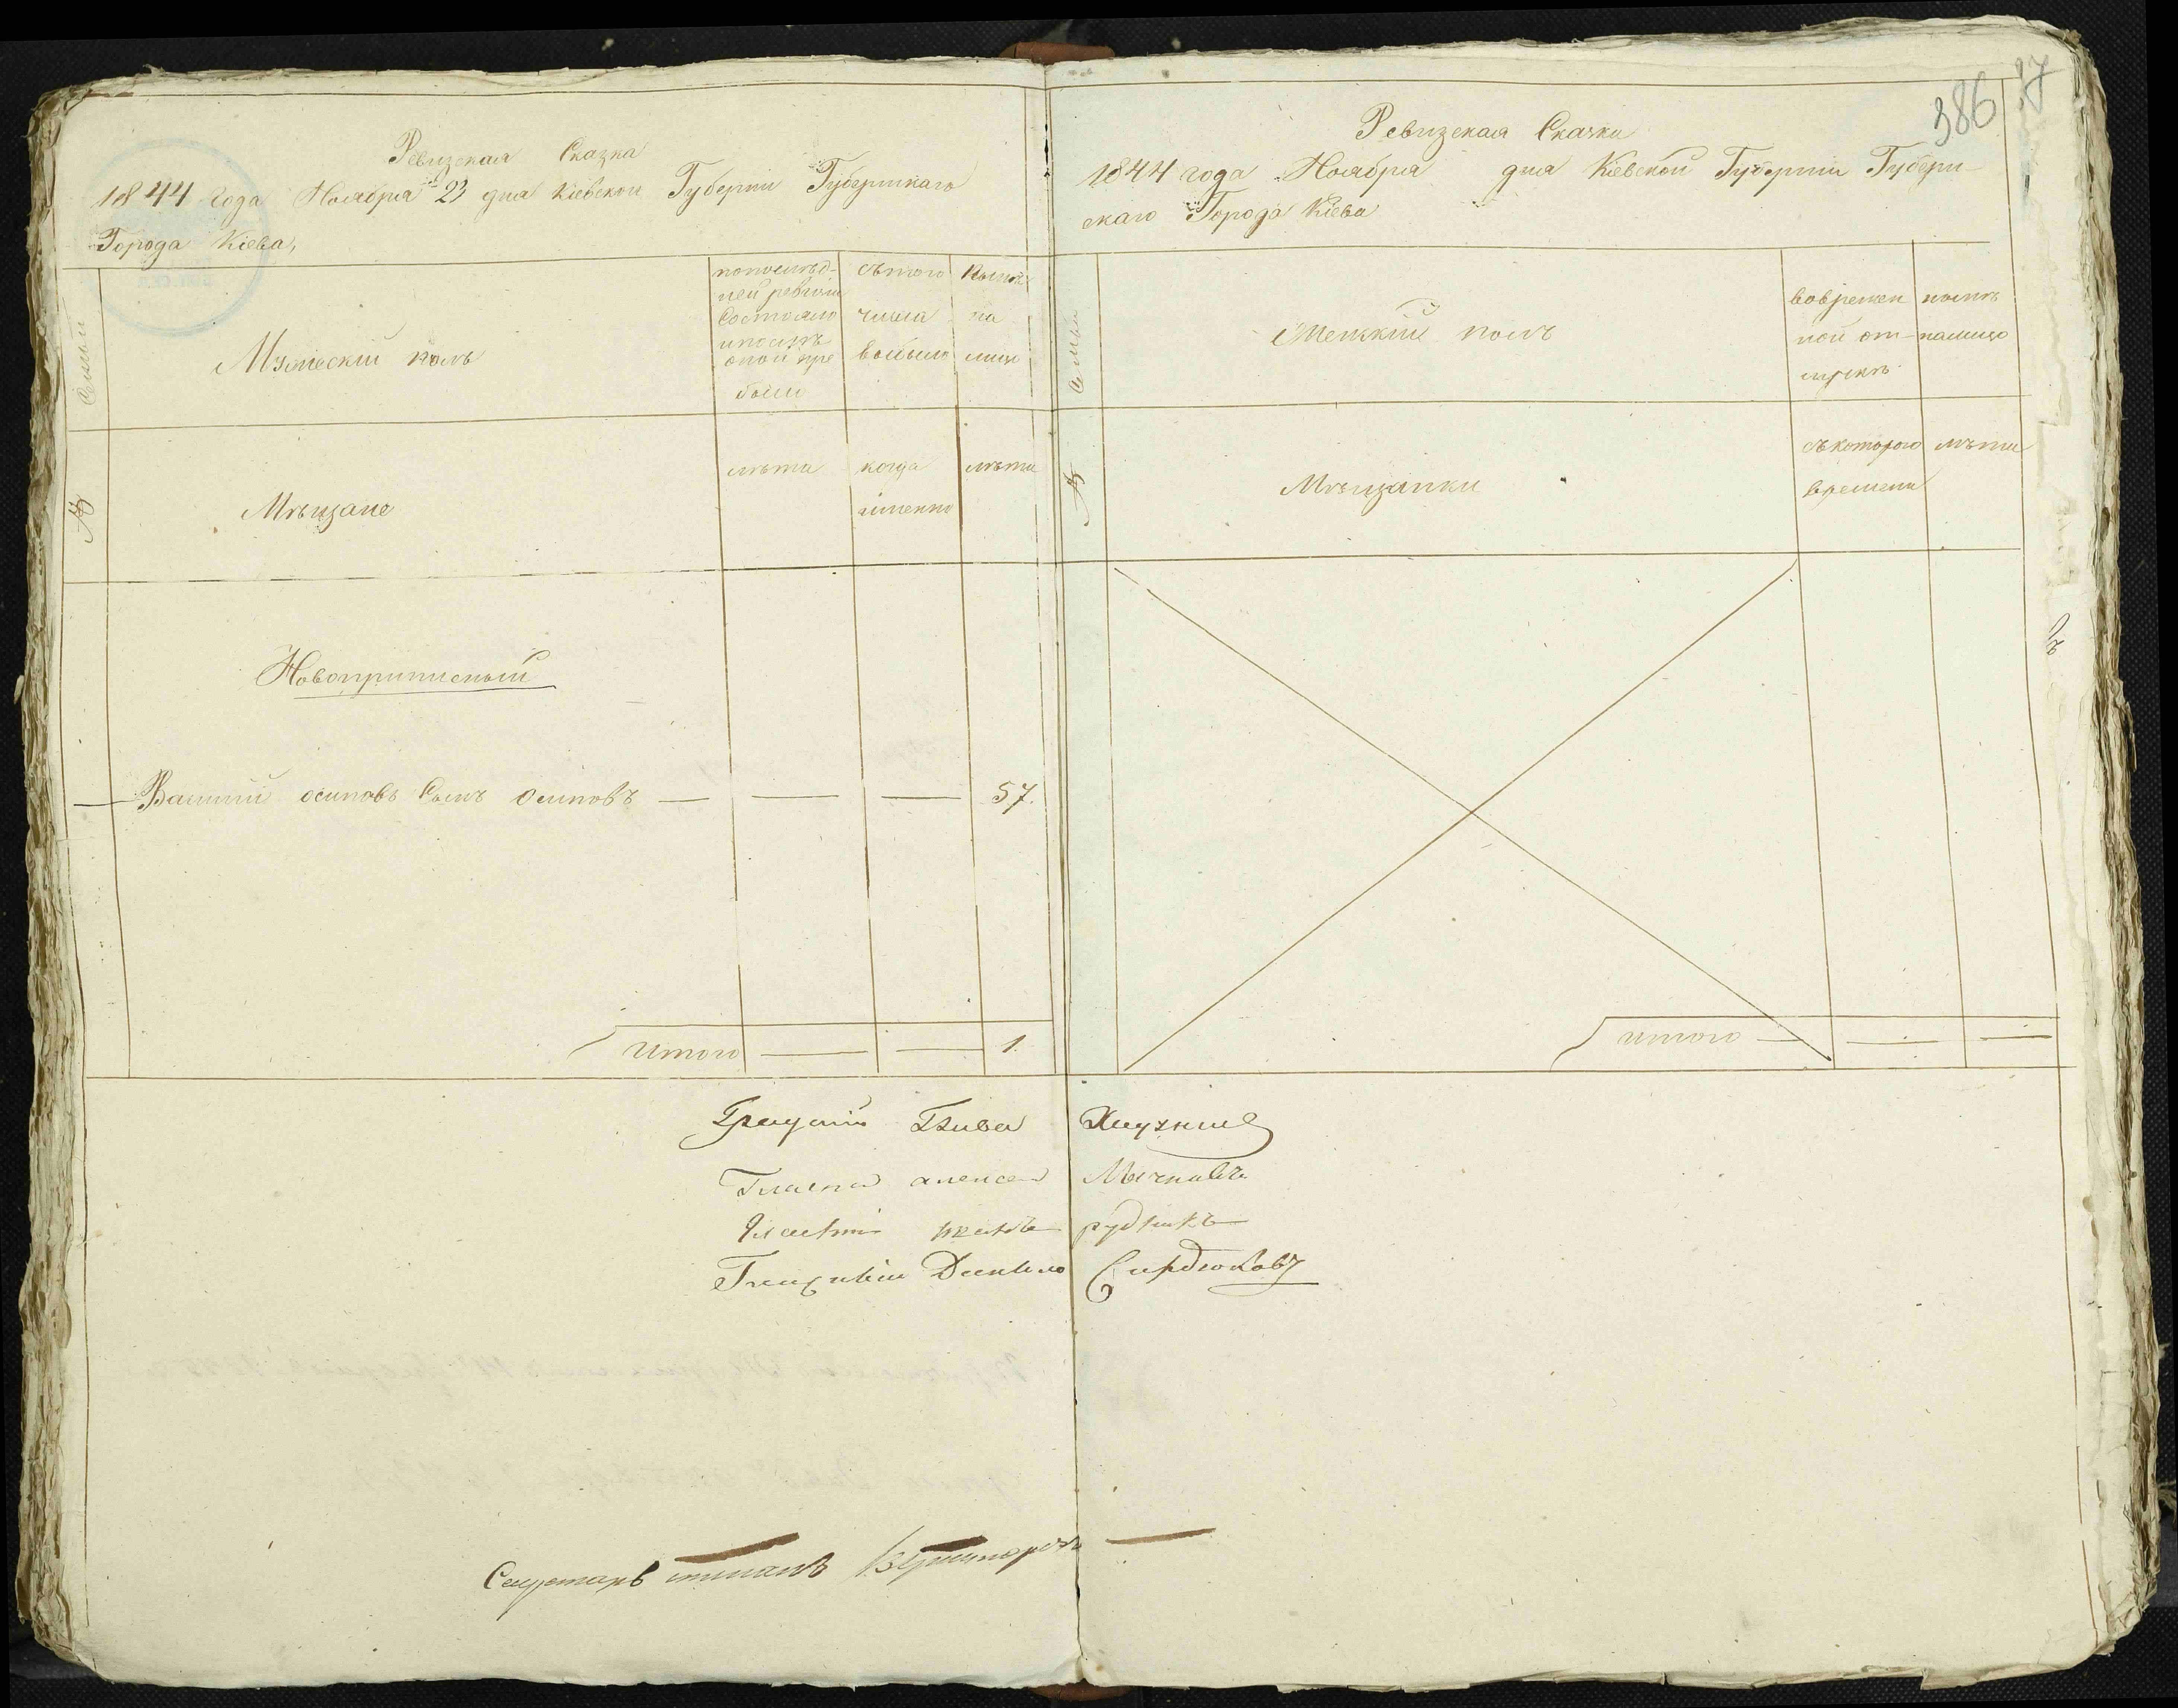 386
Ревизская Сказка
1844 года Ноября 23 дня Кіевской Губерніи Губернскаго
Города Кіева,
Семьи
Мужескій полъ
попослѣд-
ней ревизіи
состояло
ипослѣ
оной при
были
съ того
числа
выбыло
Нынѣ
на
лицо
№
Мѣщане
лѣта
когда
именно
лѣта
Новоприписный
Василій осиповъ Сынъ Осиповъ — — — 57.
Итого — — 1.
Ревизская Сказка
1844 года Ноября дня Кіевской Губерніи Губерн-
скаго Города Кіева
Семьи
Женскій полъ
вовремен
ной от-
лучкѣ
налицо
№
Мѣщанки
съ котораго
времени
лѣта
Итого — — —
Градскій Глава
Гласный алексей
Гласный иванъ рудникъ
Гласный Данило Сирдюковъ
Секретарь